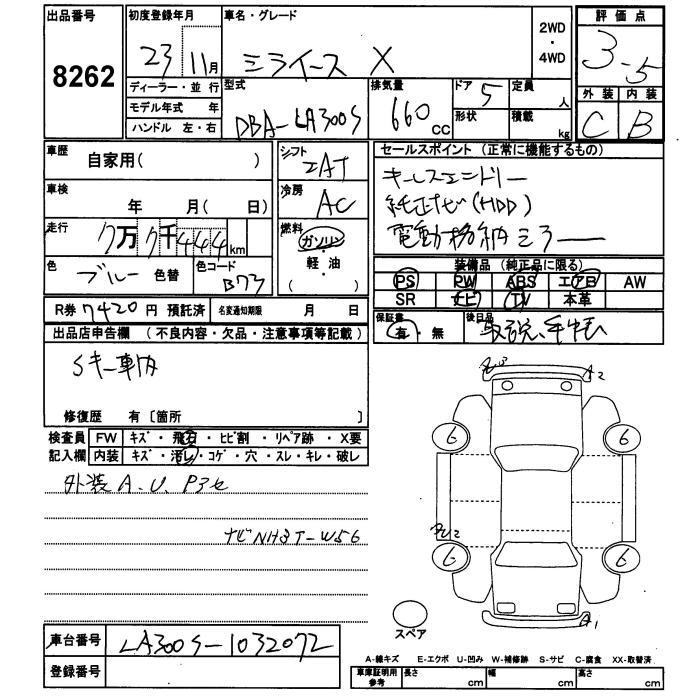 出品番号 初度登録年月 車名・グレード 評価点
8262 23 11月 ミライース X 2WD・4WD 3.5
ディーラー・並行 型式 排気量 ドア 5 定員 人 外装 内装
モデル年式 年 DBA-LA300S 660cc 形状 積載 kg C B
ハンドル 左・右
車歴 自家用( ) シフト IAT セールスポイント (正常に機能するもの)
車検 年 月( 日) 冷房 AC キーレスエントリー
走行 7万 7千 444 km 燃料 ガソリン・軽・油 ( ) 純正ナビ(HDD)
色 ブルー 色替 色コード B73 電動格納ミラー
装備品 (純正品に限る)
PS PW ABS エアB AW
SR ナビ TV 本革
R券 7420 円 預託済 名変通知期限 月 日 保証書 有・無 後日品 取説、手帳
出品店申告欄 (不良内容・欠品・注意事項等記載)
Sキー車内
修復歴 有〔箇所 〕
検査員 FW キズ・飛石・ヒビ割・リペア跡・X要
記入欄 内装 キズ・汚レ・コゲ・穴・スレ・キレ・破レ
外装A.U.
ナビNH3T-W56
A2
6 6
6 6
A1
スペア
車台番号 LA300S-1032072
登録番号
A-線キズ E-エクボ U-凹み W-補修跡 S-サビ C-腐食 XX-取替済
車庫証明用参考 長さ cm 幅 cm 高さ cm